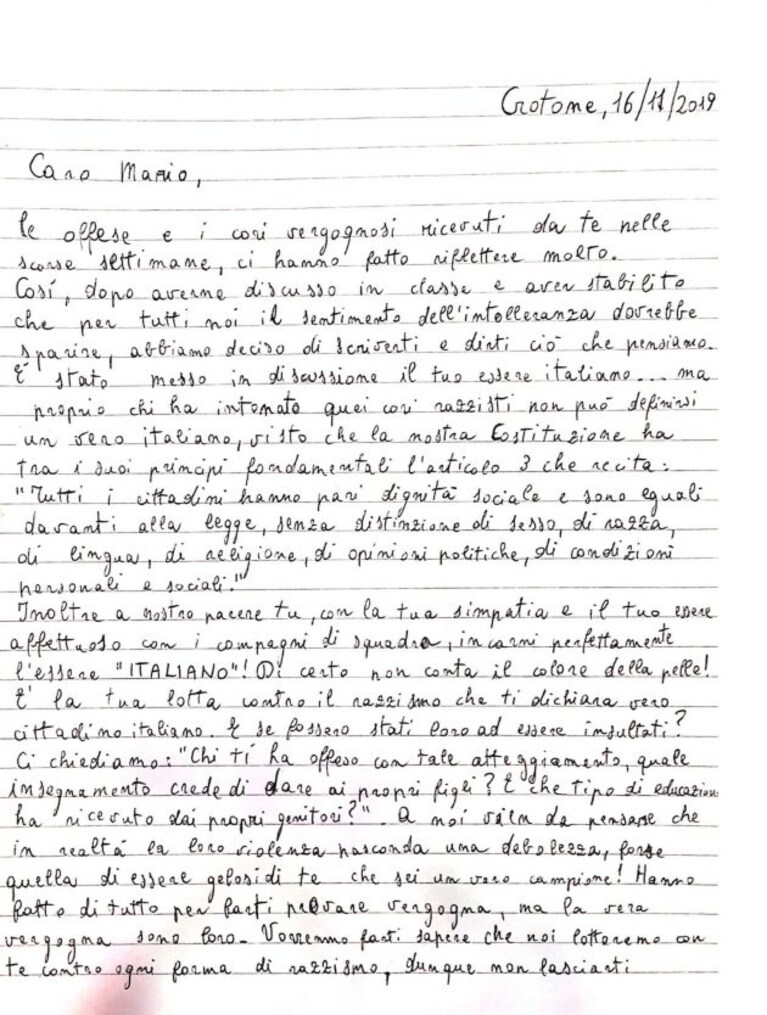 Crotone, 16/11/2019
Caro Mario,
le offese e i cori vergognosi ricevuti da te nelle
scorse settimane, ci hanno fatto riflettere molto.
Così, dopo averne discusso in classe e aver stabilito
che per tutti noi il sentimento dell'intolleranza dovrebbe
sparire, abbiamo deciso di scriverti e dirti ciò che pensiamo.
È stato messo in discussione il tuo essere italiano... ma
proprio chi ha intonato quei cori razzisti non può definirsi
un vero italiano, visto che la nostra Costituzione ha
tra i suoi principi fondamentali l'articolo 3 che recita:
"Tutti i cittadini hanno pari dignità sociale e sono eguali
davanti alla legge, senza distinzione di sesso, di razza,
di lingua, di religione, di opinioni politiche, di condizioni
personali e sociali."
Inoltre a nostro parere tu, con la tua simpatia e il tuo essere
affettuoso con i compagni di squadra, incarni perfettamente
l'essere "ITALIANO"! Di certo non conta il colore della pelle!
E' la tua lotta contro il razzismo che ti dichiara vero
cittadino italiano. E se fossero stati loro ad essere insultati?
Ci chiediamo: "Chi ti ha offeso con tale atteggiamento, quale
insegnamento crede di dare ai propri figli? E che tipo di educazione
ha ricevuto dai propri genitori?". A noi vien da pensare che
in realtà la loro violenza nasconda una debolezza, forse
quella di essere gelosi di te che sei un vero campione! Hanno
fatto di tutto per farti provare vergogna, ma la vera
vergogna sono loro. Vorremmo farti sapere che noi lotteremo con
te contro ogni forma di razzismo, dunque non lasciarti